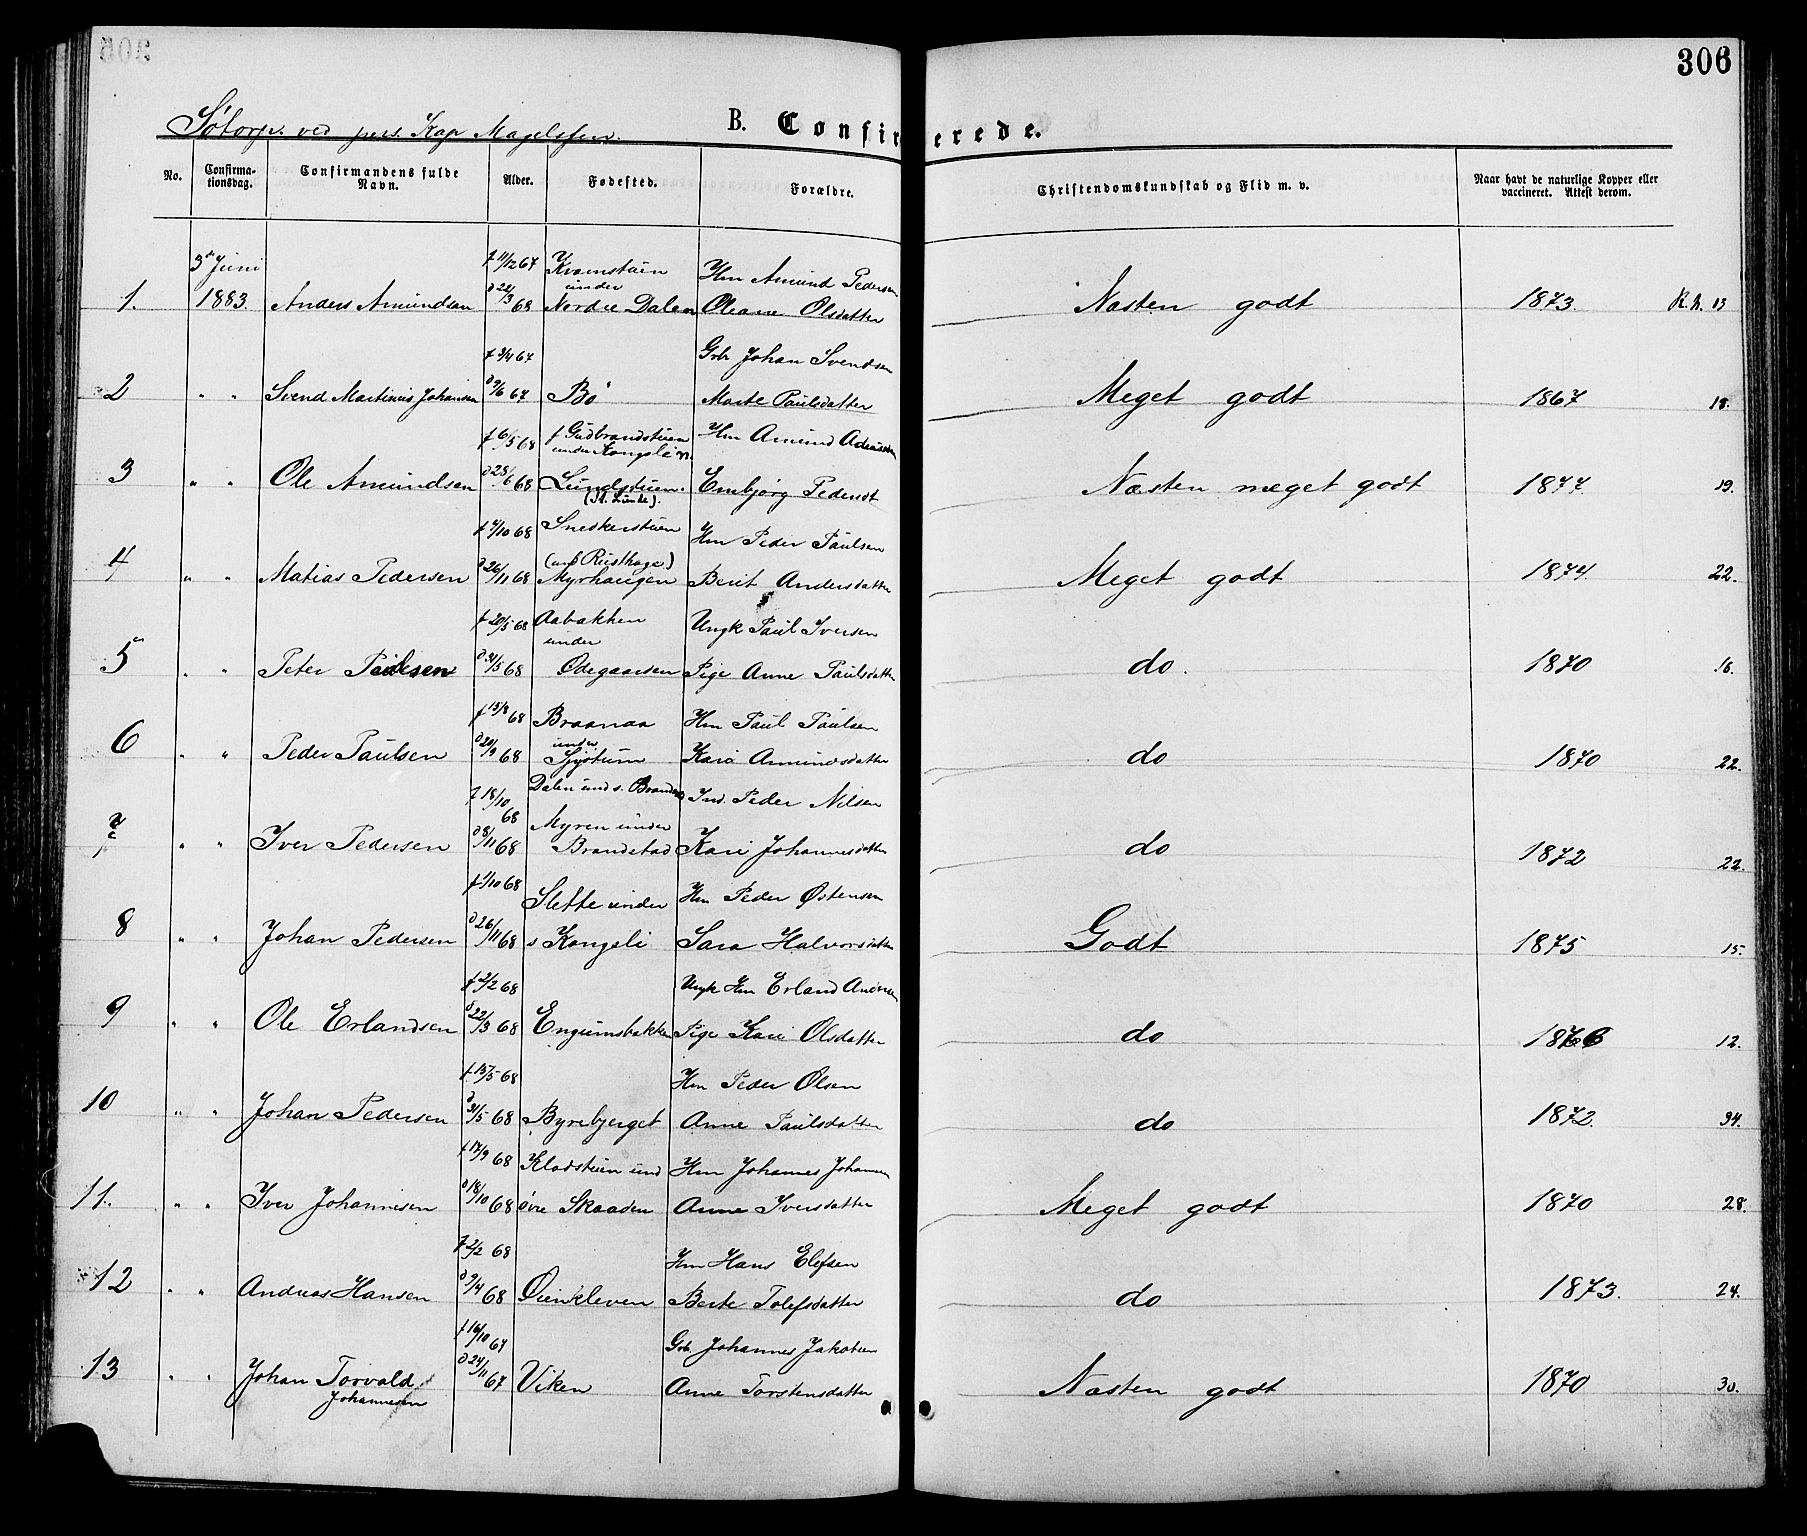 306
Sötorp. ved pers. Kap Magelssen.
B. Confirmerede.
No.
Confirma-
tionsdag.
Confirmandens fulde
Navn.
Alder.
Fødested.
Forældre.
Christendomskundskab og Flid m. v.
Naar havt de naturlige Kopper eller
vaccineret. Attest derom.
3die Juni f 11/12 67 Kvamstuen Hm Amund Pedersen
under
1. 1883. Anders Amundsen d 22/3 68 Nordre Dalen Oleane Olsdatter Næsten godt 1873. K.R. 13
f 3/4 67 Grb Johan Svendsen
2 " " Svend Martinus Johansen d 9/6 67 Bö Marte Paulsdatter Meget godt 1867 18.
f 6/5 68 f Gudbrandstuen Hm Amund
under Kongsli n.
3 " " Ole Amundsen d 28/6 68 Lundstuen. Embjørg Pedersdt Næsten meget godt 1877. 19.
f 4/10 68 Snekkerstuen Hm Peder Paulsen
4 " " Matias Pedersen d 26/11 68 Myrhaugen Berit Andersdatter Meget godt 1874. 22.
f 20/5 68 Aabakken Ungk Paul Iversen
under
5 " " Peter Paulsen d 31/5 68 Ødegaarden Pige Anne Paulsdatter do. 1870 16.
f 15/8 68 Braanaa Hm Paul Paulsen
under
6 " " Peder Paulsen d 20/9 68 Kari Amundsdatter do 1870 22.
f 18/10 68 Dalen und s. Ind. Peder Nilsen
Myren under
7 " " Iver Pedersen d 8/11 68 Brandstad Kari Johannesdatter do 1872 22.
f 1/10 68 Slette under Hm Peder Østensen
8 " " Johan Pedersen d 26/11 68 s Kongsli Sara Halvorsdatter Godt 1875 15.
f 2/2 68 Ungk Hm Erland Andersen
9 " " Ole Erlandsen d 22/3 68 Engumsbakken Pige Kari Olsdatter do 1876 12.
f 15/5 68 Hm Peder Olsen
10 " " Johan Pedersen d 31/5 68 Byrebjerget Anne Paulsdatter do 1872. 34.
f 17/9 68 Klodstuen und Hm Johannes Johannesen
11. " " Iver Johannesen d 18/10 68 övre Skaaden Anne Iversdatter Meget godt 1870 28.
f 2/2 68 Hm Hans Elefsen
12 " " Andreas Hansen d 9/4 68 Øienkleven Berte Tolefsdatter do 1873. 24.
f 16/10 67 Grb Johannes Jakobsen
13 " " Johan Torvald d 24/11 67 Viken Anne Torstensdatter Næsten godt 1870 30.
Johannesen